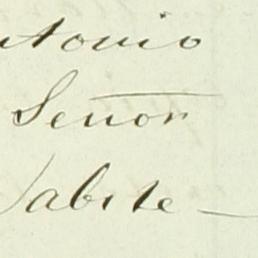 ntonio
Señor
Jabite